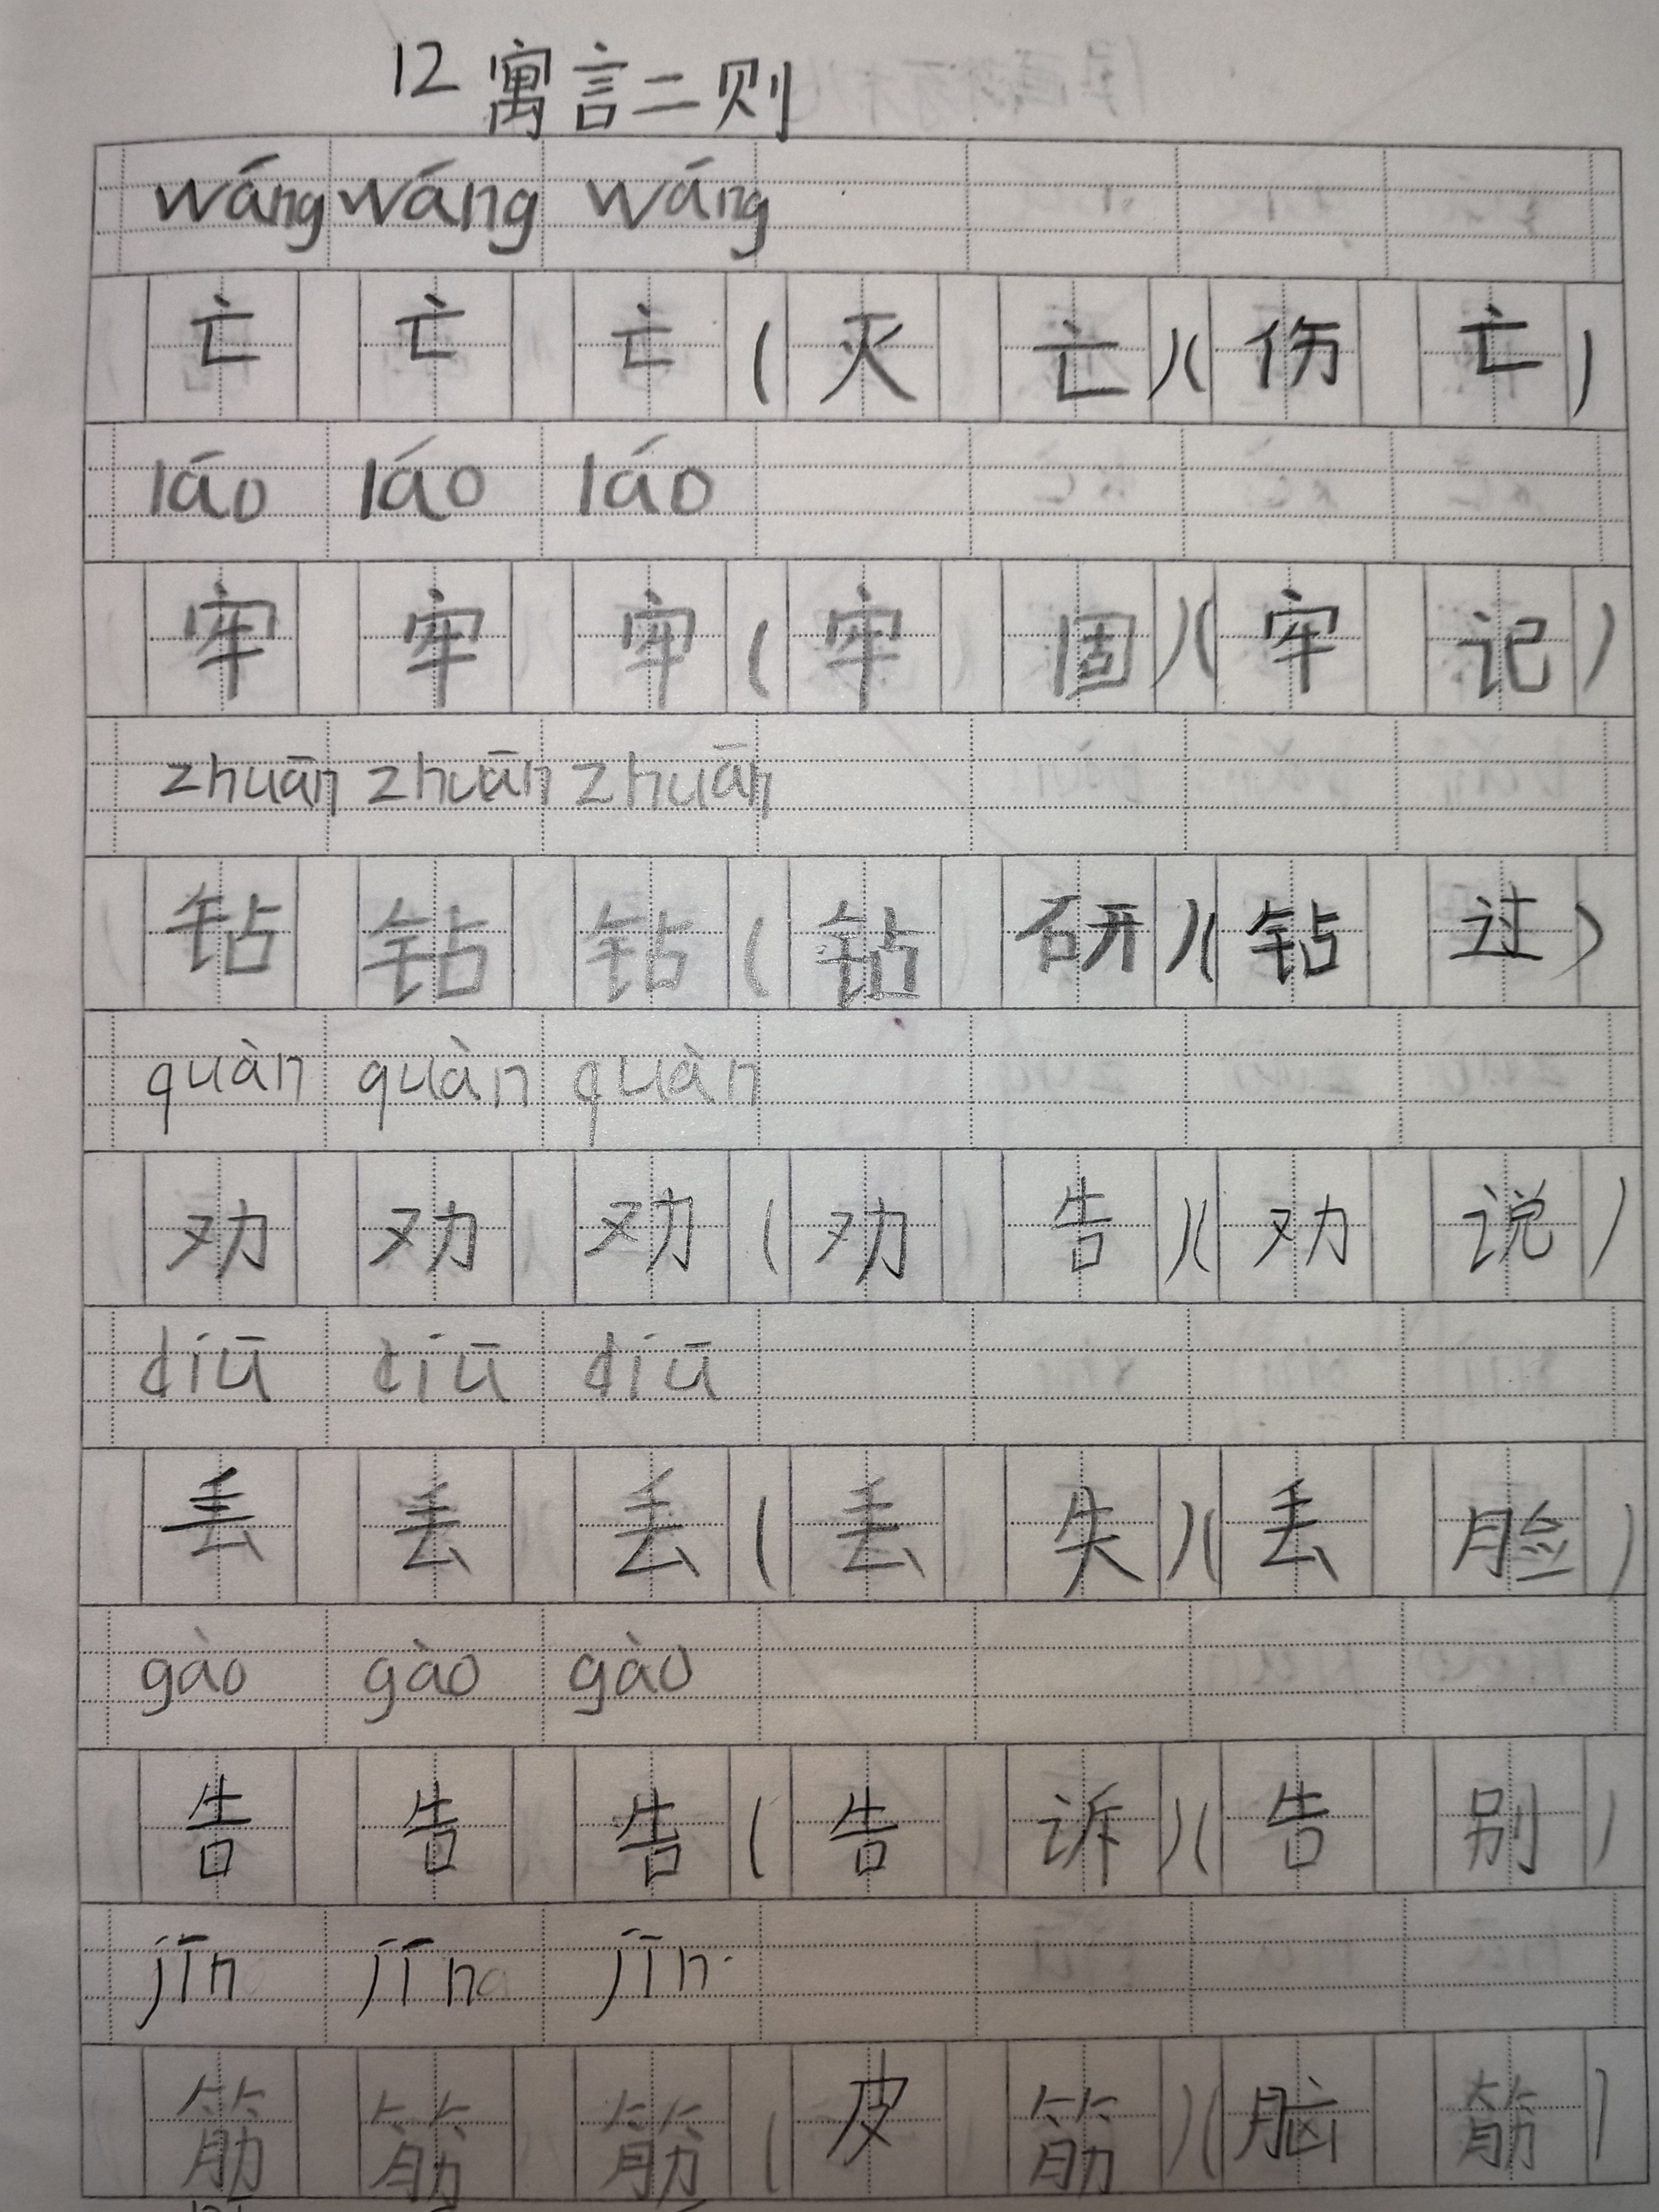 12 寓言二则
wáng wáng wáng
亡 亡 亡 (灭 亡)(伤 亡)
láo láo láo
牢 牢 牢 (牢 固)(牢 记)
zhuān zhuān zhuān
钻 钻 钻 (钻 研)(钻 过)
quàn quàn quàn
劝 劝 劝 (劝 告)(劝 说)
diū diū diū
丢 丢 丢 (丢 失)(丢 脸)
gào gào gào
告 告 告 (告 诉)(告 别)
jīn jīn jīn
筋 筋 筋 (皮 筋)(脑 筋)